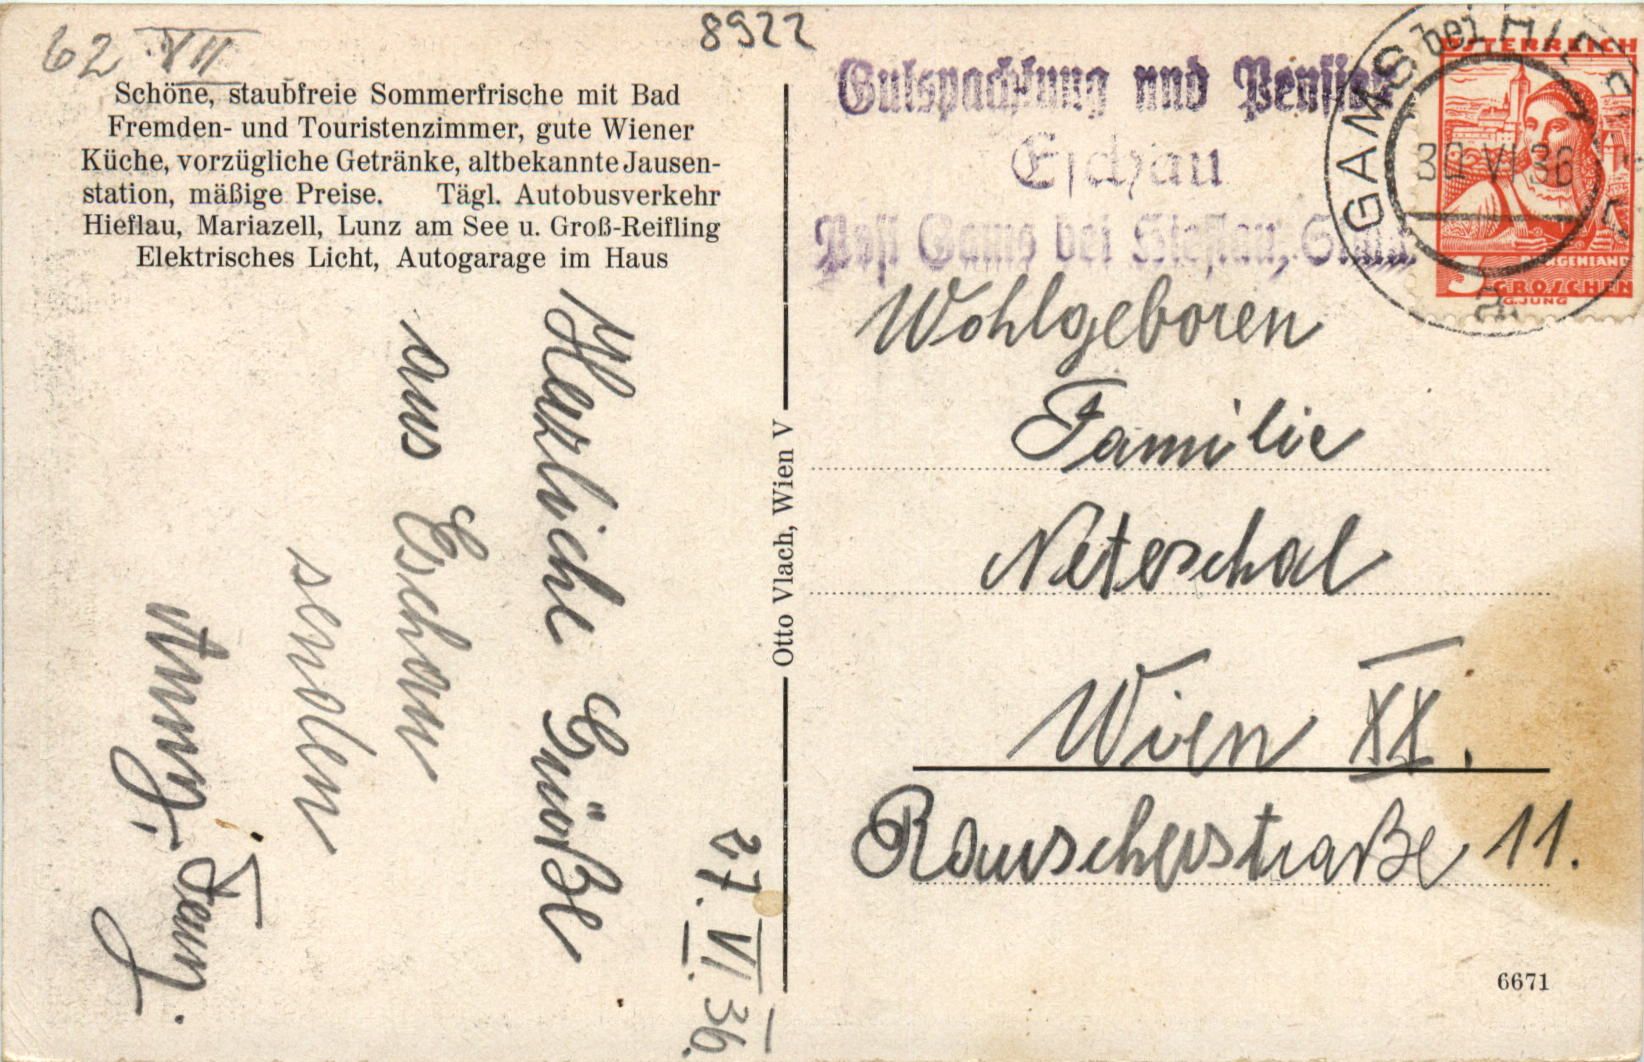 62 VII
8922
Schöne, staubfreie Sommerfrische mit Bad
Fremden- und Touristenzimmer, gute Wiener
Küche, vorzügliche Getränke, altbekannte Jausen-
station, mäßige Preise. Tägl. Autobusverkehr
Hieflau, Mariazell, Lunz am See u. Groß-Reifling
Elektrisches Licht, Autogarage im Haus
27. VI. 36.
Herzliche Grüße
aus Eschau
senden
Otto Vlach, Wien V
Gutspachtung und Pension
Eschau
Post Gams bei Hieflau, Stmk.
GAMS bei
30 VI 36
a
ÖSTERREICH
BURGENLAND
3 GROSCHEN
G.JUNG
Wohlgeboren
Familie
Neteschal
Wien XX.
Rauscherstraße 11.
6671